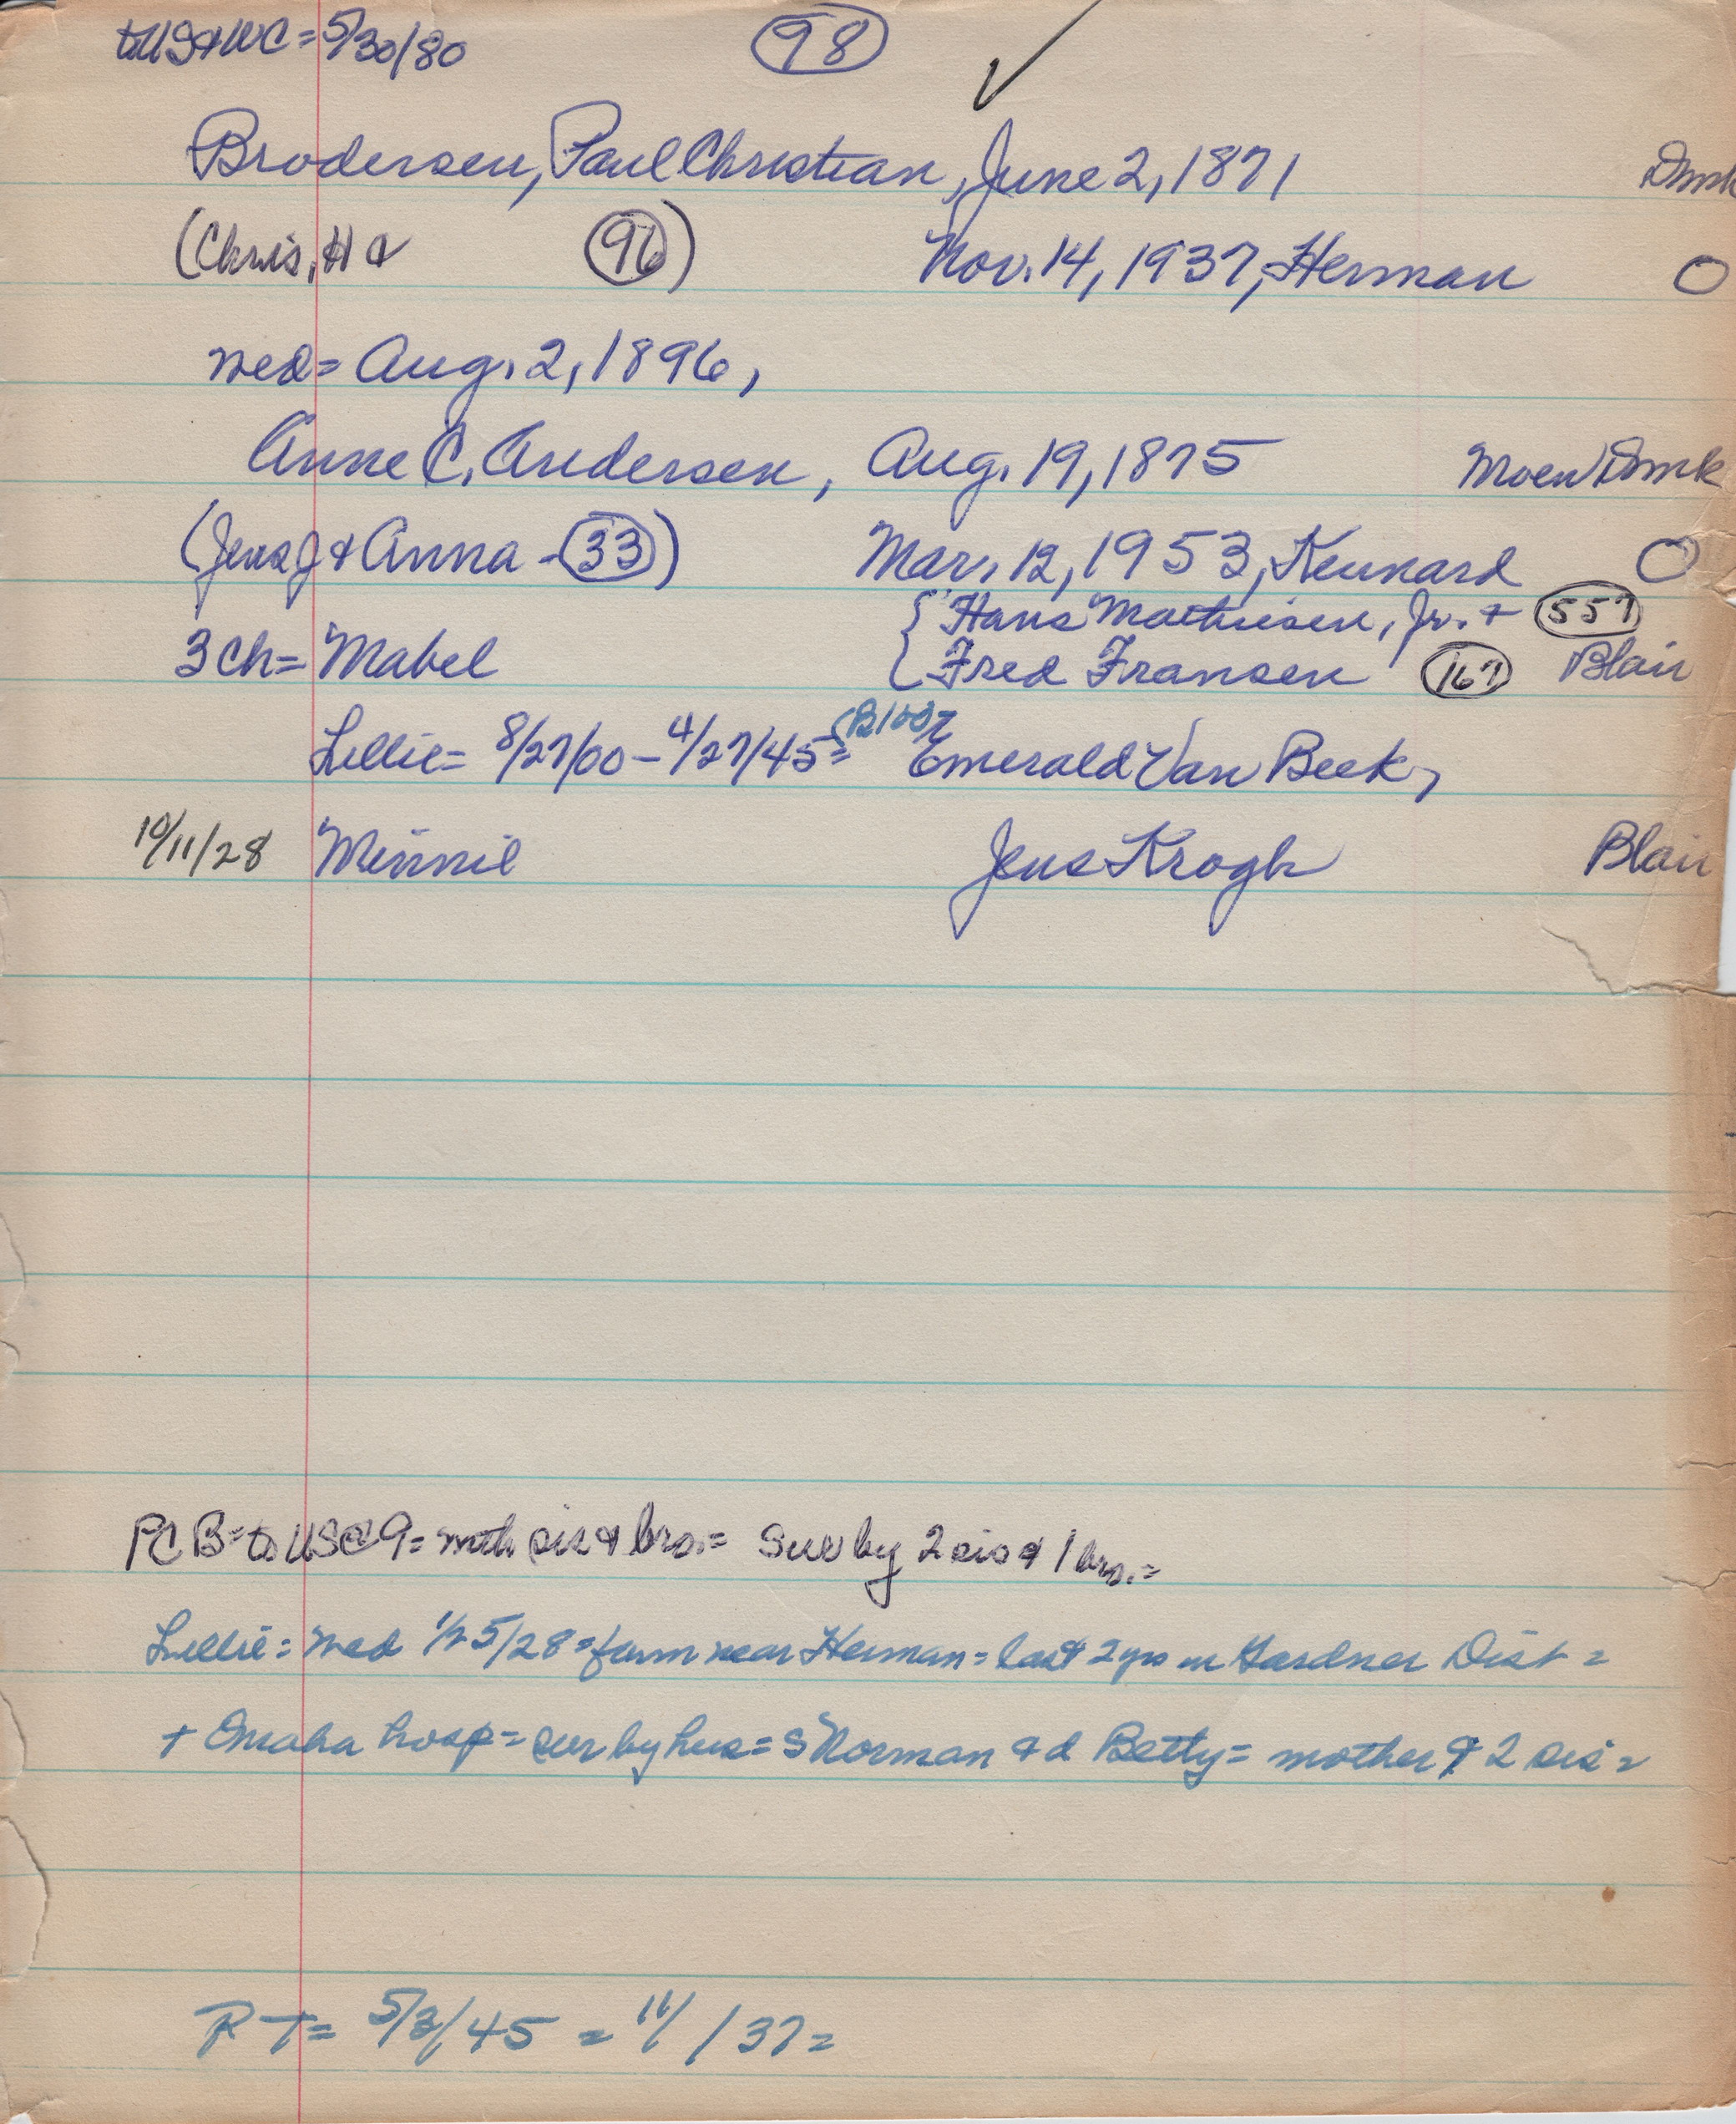 to US & WC = 5/30/80 98 ✓
Brodersen, Paul Christian, June 2, 1871 Dmk
(Chris, H & 96) Nov. 14, 1937, Herman O
wed = Aug. 2, 1896,
Anne C. Andersen, Aug. 19, 1875 Moen Dmk
(Jens J & Anna - 33) Mar. 12, 1953, Kennard O
{ Hans Mathiesen, Jr. + 557
3 Ch = Mabel { Fred Fransen 167 Blair
Lillie = 8/27/00 - 4/27/45 = (B/ Emerald Van Beek,
10/11/28 Minnie Jens Krogh Blair
PCB = to US @ 9 = moth sis & bro. = Surv by 2 sis & 1 bro. =
Lillie = wed 1/25/28 = farm near Herman = last 2 yrs in Gardner Dist =
+ Omaha hosp = sur by hus = S Norman & d Betty = mother & 2 sis =
PT = 5/3/45 = 11/ /37 =